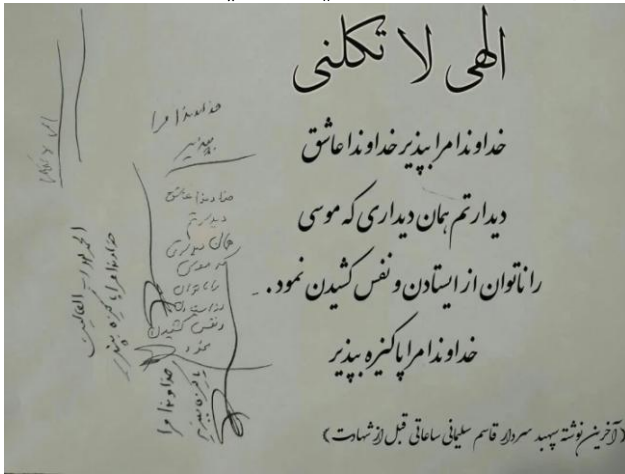 الهی لا تکلنی
خداوندا مرا بپذیر خداوندا عاشق
دیدارتم همان دیداری که موسی
را ناتوان از ایستادن و نفس کشیدن نمود .
خداوندا مرا پاکیزه بپذیر
(آخرین نوشته سپهبد سردار قاسم سلیمانی ساعاتی قبل از شهادت)
الهی لا تکلنی
خداوندا مرا
بپذیر
خداوندا عاشق
دیدارتم
همان دیداری
که موسی
را ناتوان
از ایستادن
و نفس کشیدن
نمود
الحمد لله رب العالمین
خداوندا مرا پاکیزه بپذیر
خداوندا مرا
پاکیزه بپذیر